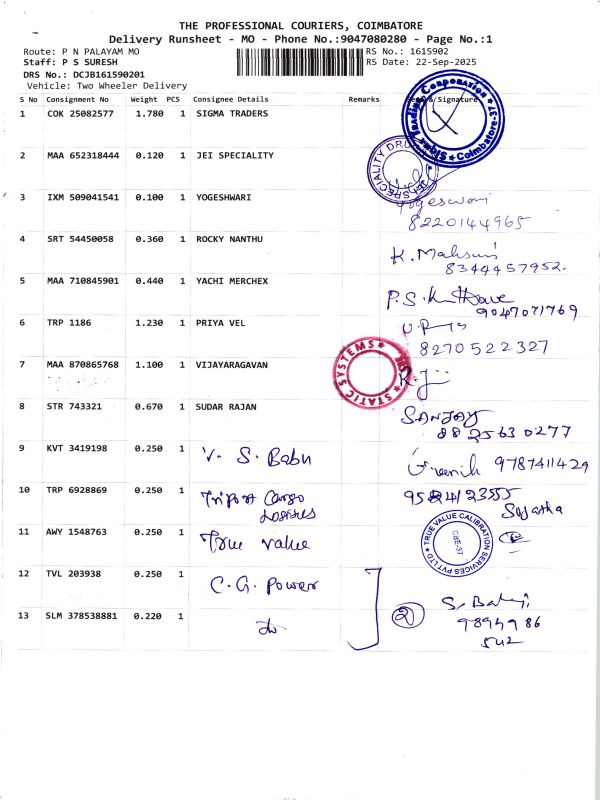 THE PROFESSIONAL COURIERS, COIMBATORE
Delivery Runsheet - MO - Phone No.:9047080280 - Page No.:1
Route: P N PALAYAM MO RS No.: 1615902
Staff: P S SURESH RS Date: 22-Sep-2025
DRS No.: DCJB161590201
Vehicle: Two Wheeler Delivery
S No Consignment No Weight PCS Consignee Details Remarks Signature
1 COK 25082577 1.780 1 SIGMA TRADERS
Coimbatore-37
2 MAA 652318444 0.120 1 JEI SPECIALITY
SPECIALITY
3 IXM 509041541 0.100 1 YOGESHWARI Yogeswari
8220144965
4 SRT 54450058 0.360 1 ROCKY NANTHU
8344457952.
5 MAA 710845901 0.440 1 YACHI MERCHEX
9047071769
6 TRP 1186 1.230 1 PRIYA VEL
8270522327
7 MAA 870865768 1.100 1 VIJAYARAGAVAN STATIC SYSTEMS
8 STR 743321 0.670 1 SUDAR RAJAN SANJAY
8825630277
9 KVT 3419198 0.250 1 V. S. Babu 9787411429
10 TRP 6928869 0.250 1 Cargo
11 AWY 1548763 0.250 1 True Value
TRUE VALUE CALIBRATION SERVICES PVT LTD CBE-37
12 TVL 203938 0.250 1 C.G. Power
13 SLM 378538881 0.220 1 do 2 9894986
542